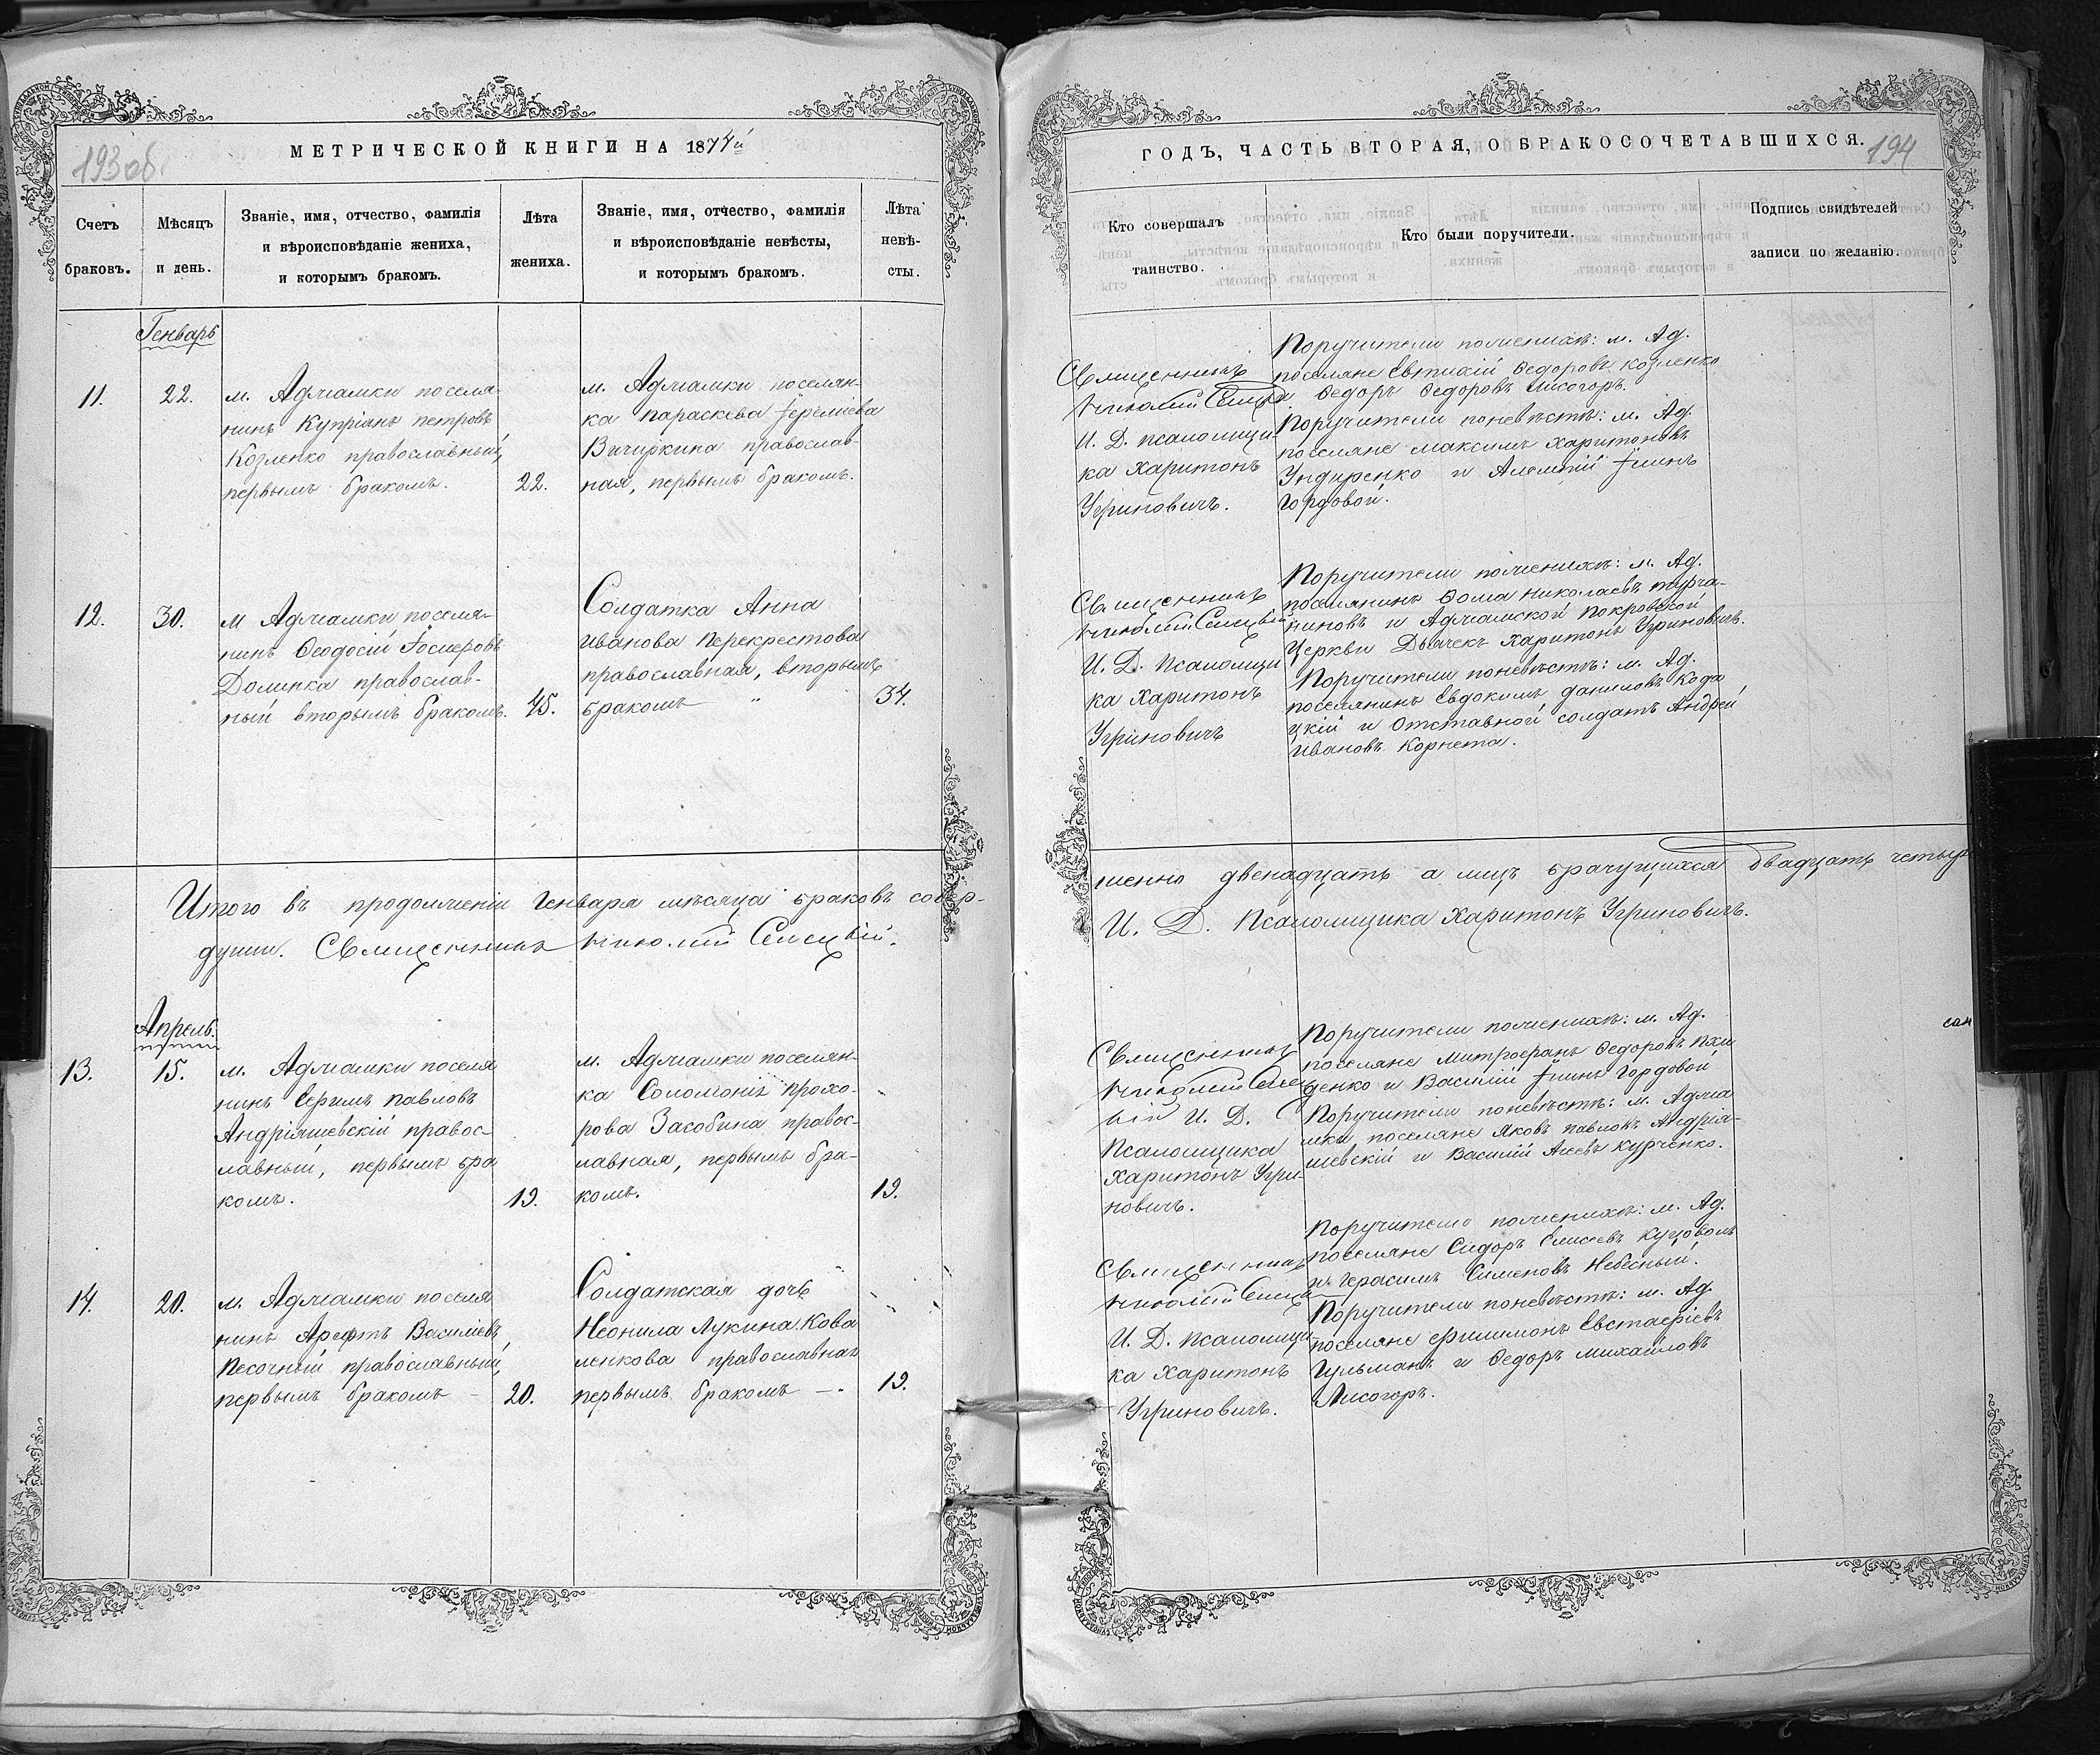 193 об.
МЕТРИЧЕСКОЙ КНИГИ НА 1874й
Счетъ браковъ.
Мѣсяцъ и день.
Званіе, имя, отчество, фамилія
и вѣроисповѣданіе жениха,
и которымъ бракомъ.
Лѣта жениха.
Званіе, имя, отчество, фамилія
и вѣроисповѣданіе невѣсты,
и которымъ бракомъ.
Лѣта невѣ-
сты.
Генварь
11.
22.
м. Аджамки поселя-
нинъ Купріанъ Петровъ
Козленко православный,
первымъ бракомъ.
22.
м. Аджамки поселян-
ка Параскева Іереміева
Вичуркина православ-
ная, первымъ бракомъ.
12.
30.
м Аджамки поселя-
нинъ Ѳеодосій Іосифовъ
Долинка православ-
ный вторымъ бракомъ.
45.
Солдатка Анна
Иванова Перекрестова
православная, вторымъ
бракомъ "
34.
Итого въ продолженіи Генваря мѣсяца браковъ совер-
души. Священникъ Николай Сѣлецкій.
Апрель.
13.
15.
м. Аджамки поселя
нинъ Ефимъ Павловъ
Андріяшевскій правос-
лавный, первымъ бра
комъ.
19.
м. Аджамки поселян-
ка Соломонія Прохо-
рова Засобина правос-
лавная, первымъ бра-
комъ.
19.
14.
20.
м. Аджамки поселя
нинъ Арефтъ Василіевъ
Песочный православный,
первымъ бракомъ -
20.
Солдатская дочь
Неонила Лукина Кова
ленкова православная
первымъ бракомъ —.
19.
194
ГОДЪ, ЧАСТЬ ВТОРАЯ, О БРАКОСОЧЕТАВШИХСЯ.
Кто совершалъ
таинство.
Кто были поручители.
Подпись свидѣтелей
записи по желанію.
Священникъ
Николай
И. Д. псаломщи-
ка Харитонъ
Угриновичъ.
Поручители по женихѣ: м. Ад.
поселяне Евтихій Ѳедоровъ Козленко
и Ѳедоръ Ѳедоровъ Лисогоръ.
Поручители по невѣстѣ: м. Ад.
поселяне Максимъ Харитоновъ
Ундиренко и Алексій Ілинъ
Гордовой.
Священникъ
Николай Сѣлецкій
И. Д. Псаломщи
ка Харитонъ
Угриновичъ
Поручители по женихѣ: м. Ад.
поселянинъ Ѳома Николаевъ Турча-
ниновъ и Аджамской Покровской
Церкви Дьячекъ Харитонъ Угриновичъ.
Поручители по невѣстѣ: м. Ад.
поселянинъ Евдокимъ Даниловъ Кода
цкій и Отставной солдатъ Андрей
Ивановъ Корнета.
шенно двенадцать а лицъ брачущихся двадцать четыре
И. Д. Псаломщика Харитонъ Угриновичъ.
Священникъ
Николай Сѣлец
кій И. Д.
Псаломщика
Харитонъ Угри-
новичъ.
Поручители по женихѣ: м. Ад.
поселяне Митрофанъ Ѳедоровъ
денко и Василій Ілинъ Гордовой
Поручители по невѣстѣ: м. Аджа
мки поселяне Яковъ Павловъ Андрія-
шевскій и Василій Курченко.
Священникъ
Николай
И. Д. Псаломщи-
ка Харитонъ
Угриновичъ.
Поручители по женихѣ: м. Ад.
поселяне Сидоръ Елисеевъ Куцоволъ
и Герасимъ Сименовъ Небесный.
Поручители по невѣстѣ: м. Ад.
поселяне Филимонъ Евстафіевъ
Гульманъ и Ѳедоръ Михайловъ
Лисогоръ.